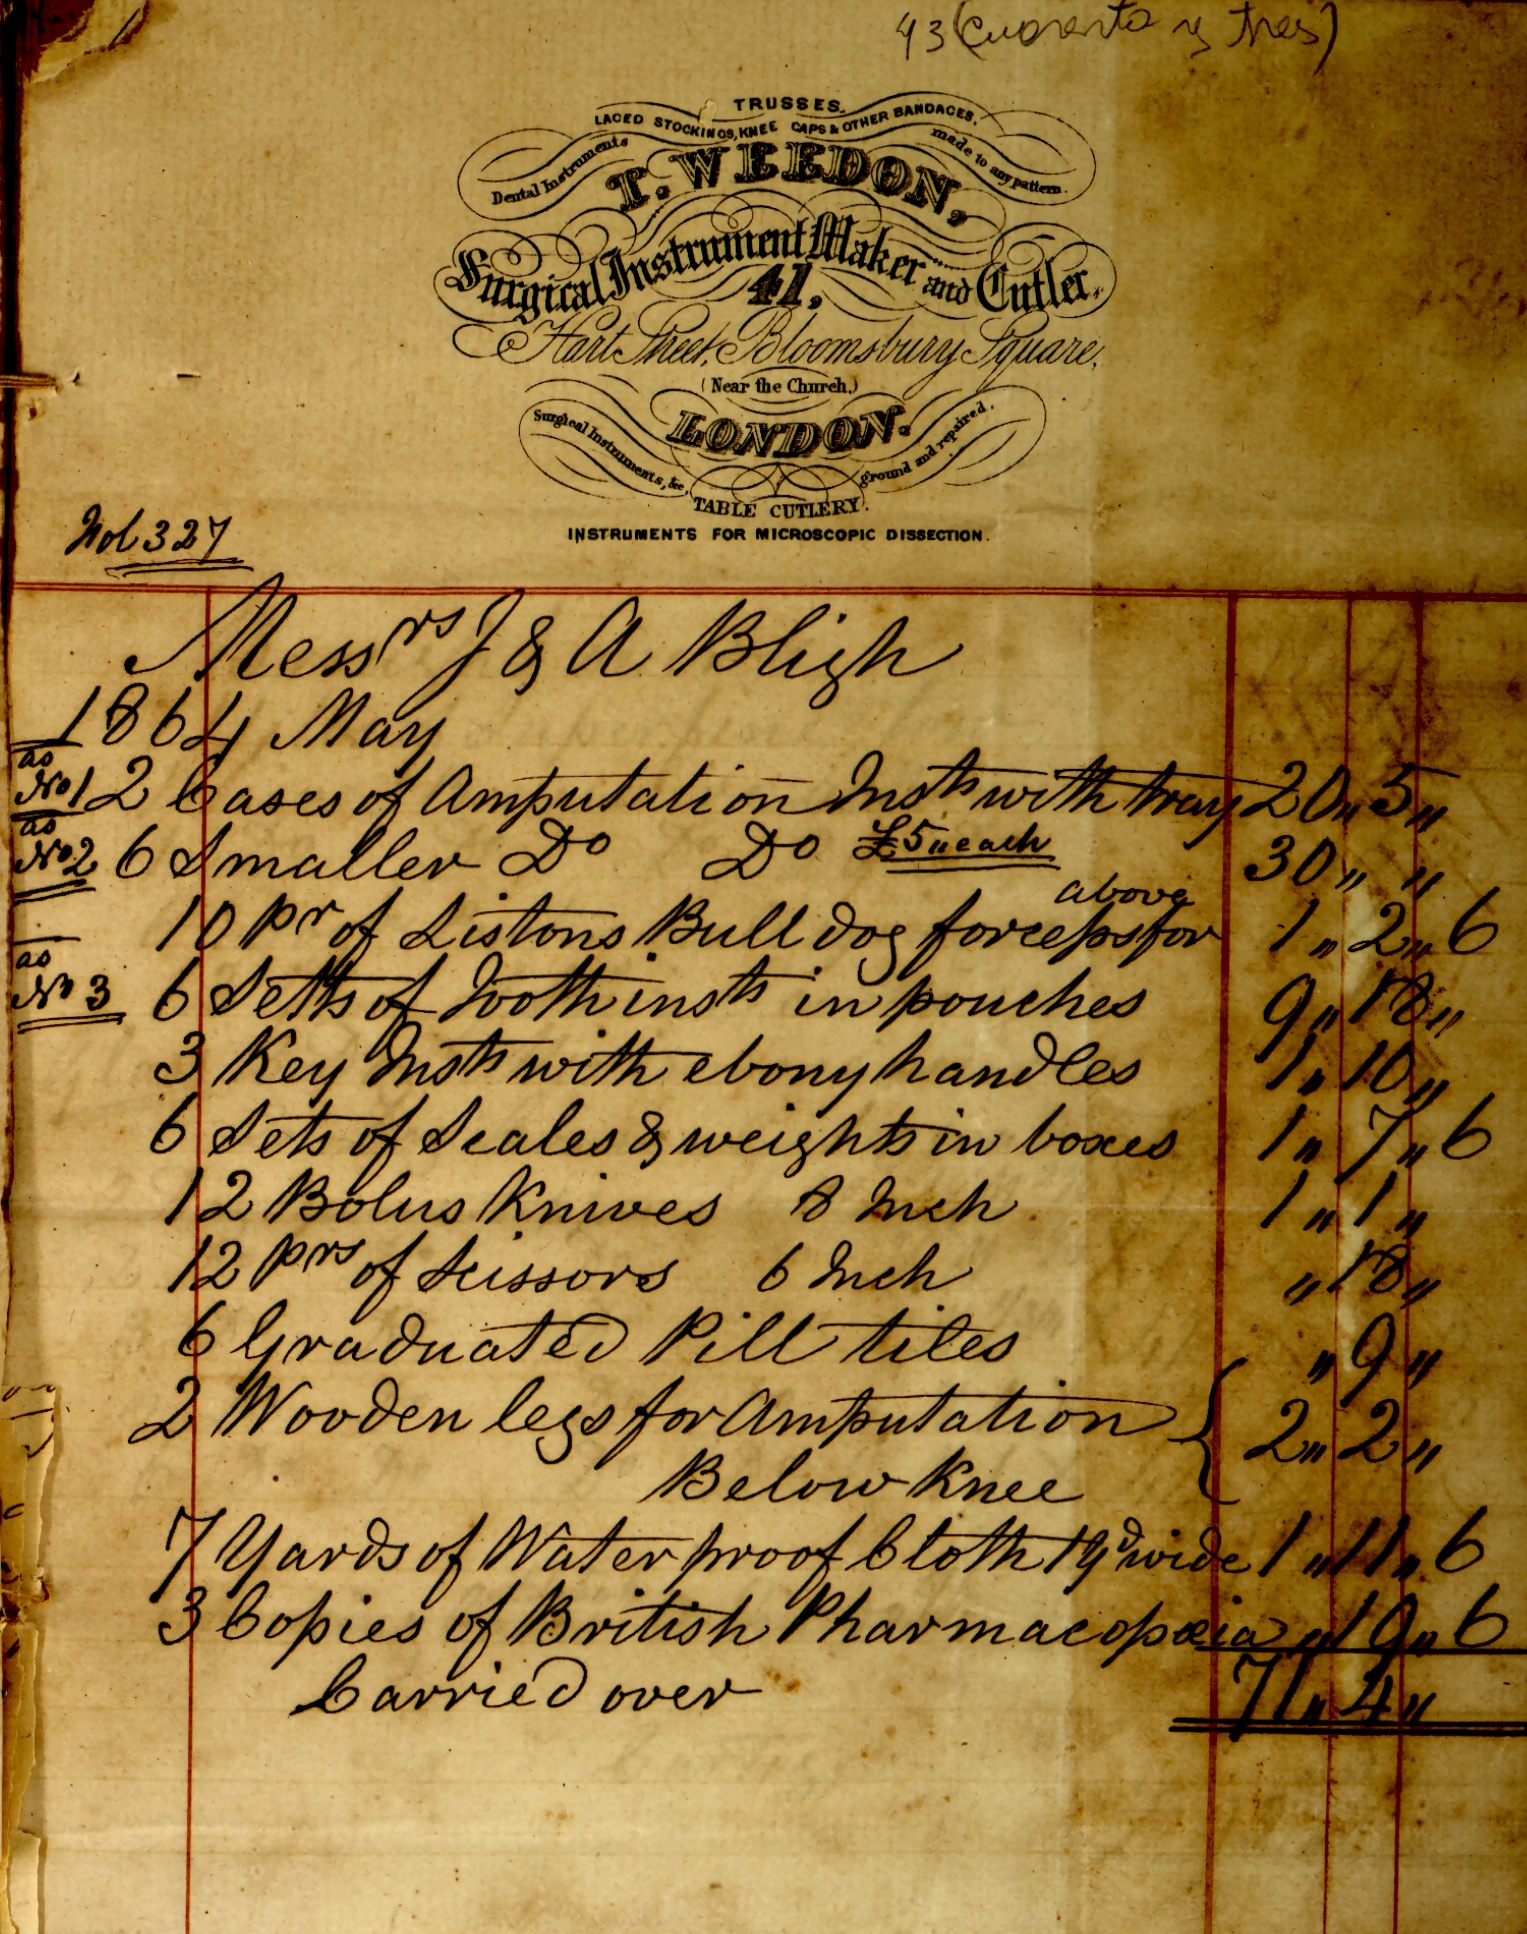 43 (cuarenta y tres)
TRUSSES.
LACED STOCKINGS, KNEE CAPS & OTHER BANDAGES.
Dental Instruments made to any pattern.
T. WEEDON,
Surgical Instrument Maker and Cutler.
41,
Hart Street, Bloomsbury Square,
(Near the Church.)
LONDON.
Surgical Instruments, &c, ground and repaired.
TABLE CUTLERY.
INSTRUMENTS FOR MICROSCOPIC DISSECTION.
327
Messrs J & A Bligh
1864 May
as No 1 2 Cases of Amputation Insts with tray 20 " 5 "
as No 2 6 Smaller Do Do £5 " each 30 " "
10 pr of Listons Bull dog forceps for above 1 " 2 " 6
as No 3 6 Setts of Tooth insts in pouches 9 " 18 "
3 Key Insts with ebony handles 1 " 10 "
6 Sets of Scales & weights in boxes 1 " 7 " 6
12 Bolus Knives 8 Inch 1 " 1 "
12 prs of Scissors 6 Inch " 18 "
6 Graduated Pill tiles " 9 "
2 Wooden legs for Amputation { 2 " 2 "
Below Knee
7 Yards of Water proof Cloth 1 yd wide 1 " 11 " 6
3 Copies of British Pharmacopœia " 19 " 6
Carried over 71 " 4 "